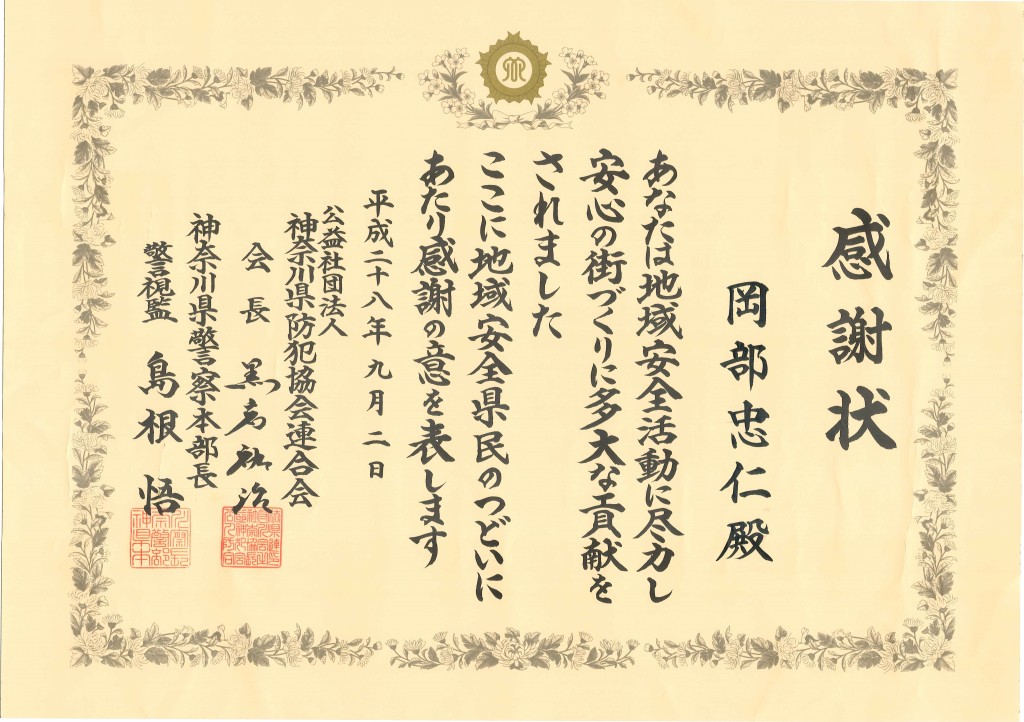 感謝状
岡部忠仁殿
あなたは地域安全活動に尽力し
安心の街づくりに多大な貢献を
されました
ここに地域安全県民のつどいに
あたり感謝の意を表します
平成二十八年九月二日
公益社団法人
神奈川県防犯協会連合会
会長
神奈川県警察本部長
警視監 島根 悟